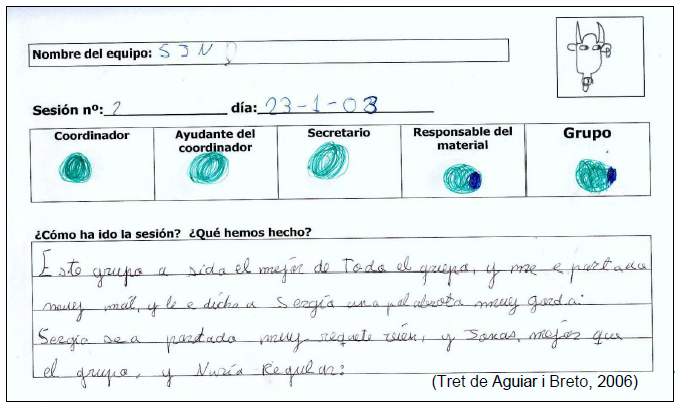 Nombre del equipo: SJN
Sesión nº: 2 día: 23-1-03
Coordinador Ayudante del coordinador Secretario Responsable del material Grupo
¿Cómo ha ido la sesión? ¿Qué hemos hecho?
Este grupo a sido el mejor de Todo el grupo, y me e portado
muy mal, y le e dicho a Sergio una palabrota muy gorda:
Sergio se a portado muy requete vién, y Jonas, mejor que
el grupo, y Nuria Regular:
(Tret de Aguiar i Breto, 2006)